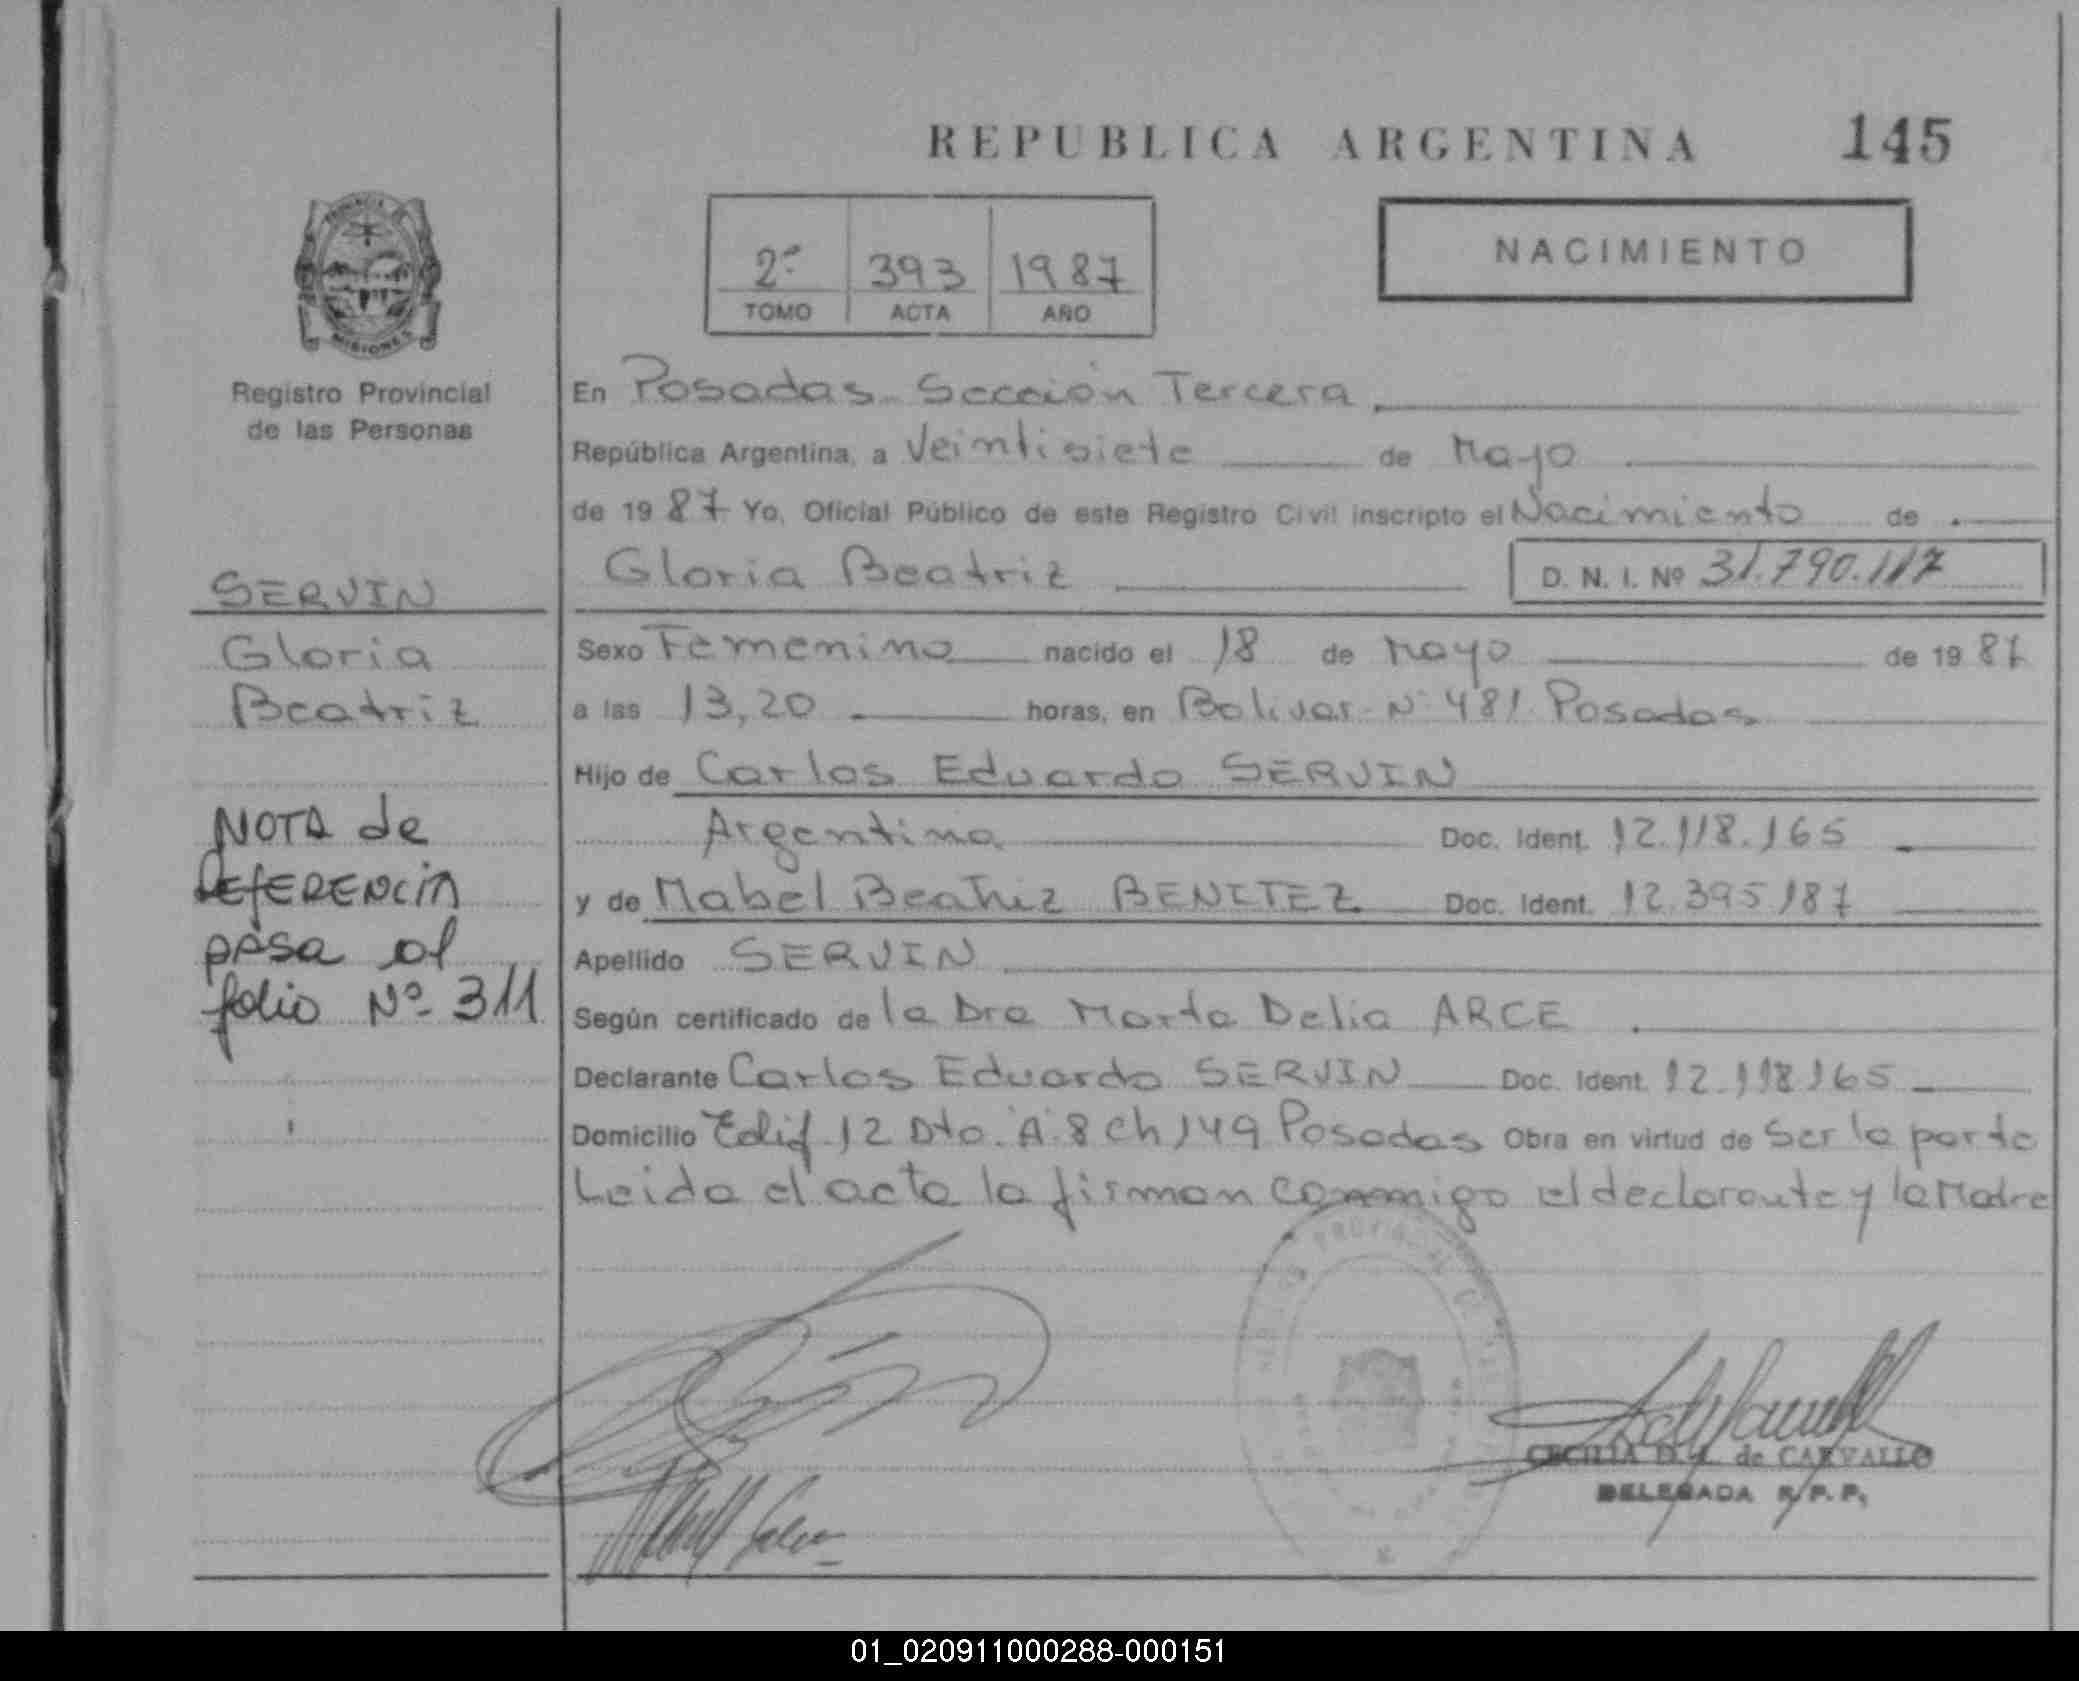 REPUBLICA ARGENTINA 145
PROVINCIA DE
MISIONES
Registro Provincial
de las Personas
2º 393 1987
TOMO ACTA AÑO
NACIMIENTO
SERVIN
Gloria
Beatriz
NOTA de
REFERENCIA
pasa al
folio Nº 311
En Posadas Sección Tercera
República Argentina, a Veintisiete de Mayo
de 1987 Yo, Oficial Público de este Registro Civil inscripto el Nacimiento de
Gloria Beatriz D. N. I. Nº 31.790.117
Sexo Femenino nacido el 18 de Mayo de 1987
a las 13,20 horas, en Bolivar Nº 481 Posadas
Hijo de Carlos Eduardo SERVIN
Argentino Doc. Ident. 12.118.165
y de Mabel Beatriz BENITEZ Doc. Ident. 12.395.187
Apellido SERVIN
Según certificado de la Dra Marta Delia ARCE
Declarante Carlos Eduardo SERVIN Doc. Ident. 12.118165
Domicilio Edif. 12 Dto. "A" 8 Ch 149 Posadas Obra en virtud de Ser la parte
Leida el acta la firman conmigo el declarante y la Madre
CECILIA de CARVALLO
DELEGADA R.P.P.
01_020911000288-000151